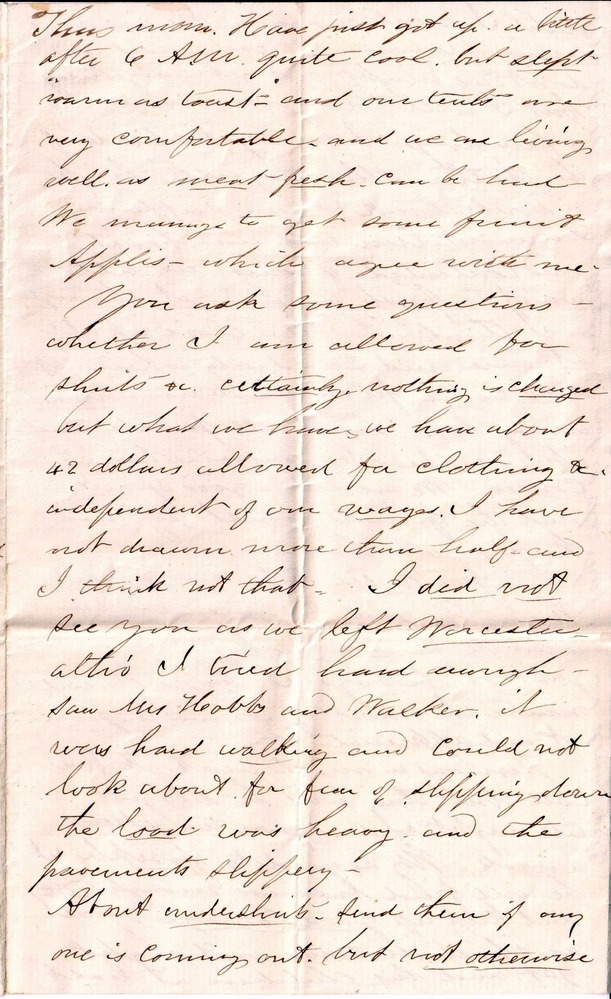 Thurs morn. Have just got up. a little
after 6 A.M. quite cool. but slept
warm as toast - and our tents are
very comfortable - and we are living
well. as meat fresh. can be had
We manage to get some fruit
Applis - which agree with me
You ask some questions -
whether I am allowed for
shirts &c. certainly, nothing is charged
but what we have, we have about
42 dollars allowed for clothing &c
independent of our wages. I have
not drawn more than half - and
I think not that - I did not
see you as we left Worcester -
altho I tried hard enough -
saw Mrs Hobbs and Walker. it
was hard walking and could not
look about for fear of slipping down
the load was heavy. and the
pavements slippery -
About undershirts - send them if any
one is coming out. but not otherwise